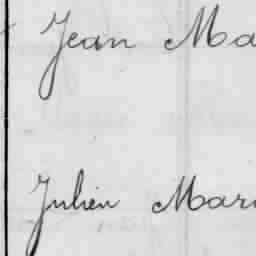 Jean Ma
Julien Mari